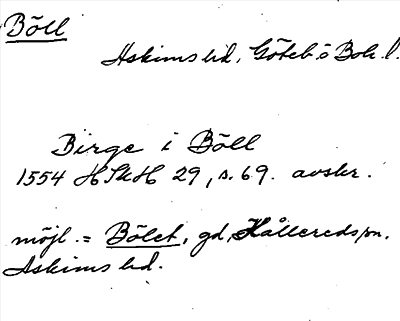 Böll
Askims hd, Göteb. o Boh. l.
Birge i Böll
1554 HSkH 29, s. 69. avskr.
möjl. = Bölet, gd, Kållereds sn,
Askims hd.